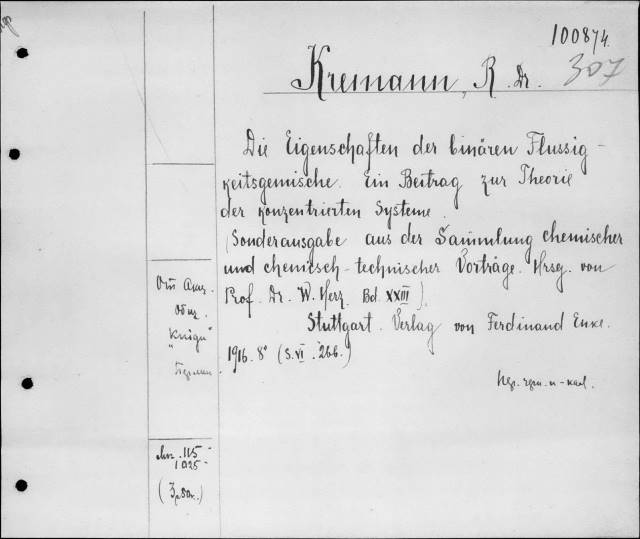 100874.
307
Kremann, R. Dr.
Die Eigenschaften der binären Flussig-
keitsgemische. Ein Beitrag zur Theorie
der konzentrierten Systeme.
(Sonderausgabe aus der Sammlung chemischer
und chemisch-technischer Vorträge. Hrsg. von
Prof. Dr. W. Herz. Bd. XXIII).
Stuttgart. Verlag von Ferdinand Enke.
1916. 8° (S. VI. 266.)
"Книги"
115
1925